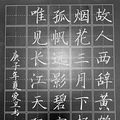 故人西辞黄
烟花三月下
孤帆远影碧
唯见长江天
庚子年夏